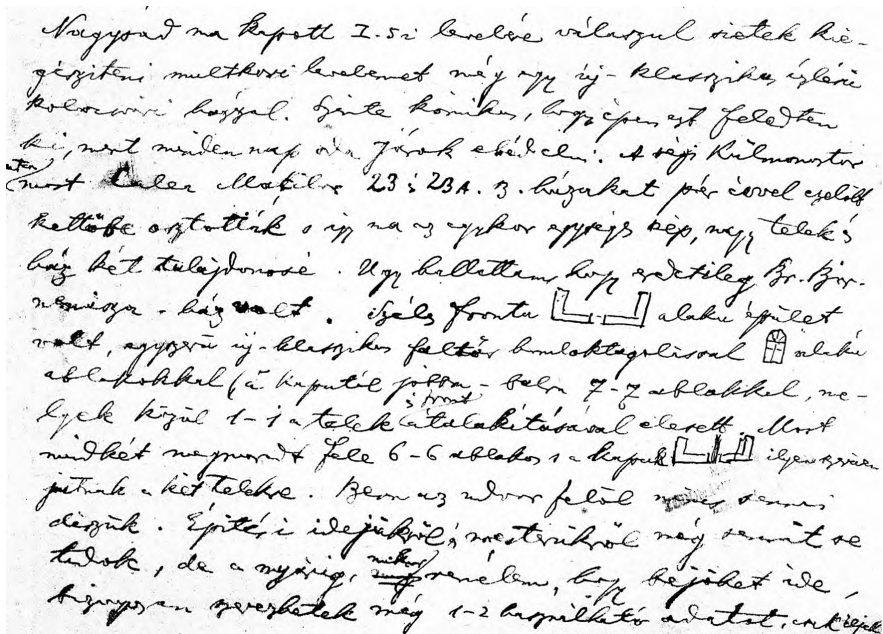 Nagysád ma kapott I. 5-i levelére válaszul sietek kie-
gészíteni multkori levelemet még egy új-klasszikus ízlésű
kolozsvári házzal. Szinte komikus, hogy épen ezt feledtem
ki, mert minden nap oda járok ebédelni. A régi Külmonostor
most Calea Moţilor 23 és 23A. sz. házakat pár évvel ezelőtt
kettőbe osztották s így ma az egykor egységes szép, nagy telek és
ház két tulajdonosé. Úgy hallottam, hogy eredetileg Br. Bor-
nemisza-ház volt. Széles frontu alaku épület
volt, egyszerű új-klasszikus faltör homloktagolással alaku
ablakokkal (a kaputól jobbra-balra 7-7 ablakkal, me-
lyek közül 1-1 a telek és front átalakításával elesett. Most
mindkét megmaradt fele 6-6 ablakos s a kapuk ilyenszerüen
jutnak a két telekre. Benn az udvar felöl nincs semmi
díszük. Építési idejükről és mesterükről még semmit se
tudok, de a nyárig, mikor remélem, hogy bejöhet ide,
bizonyosan szerezhetek még 1-2 használható adatot, csak